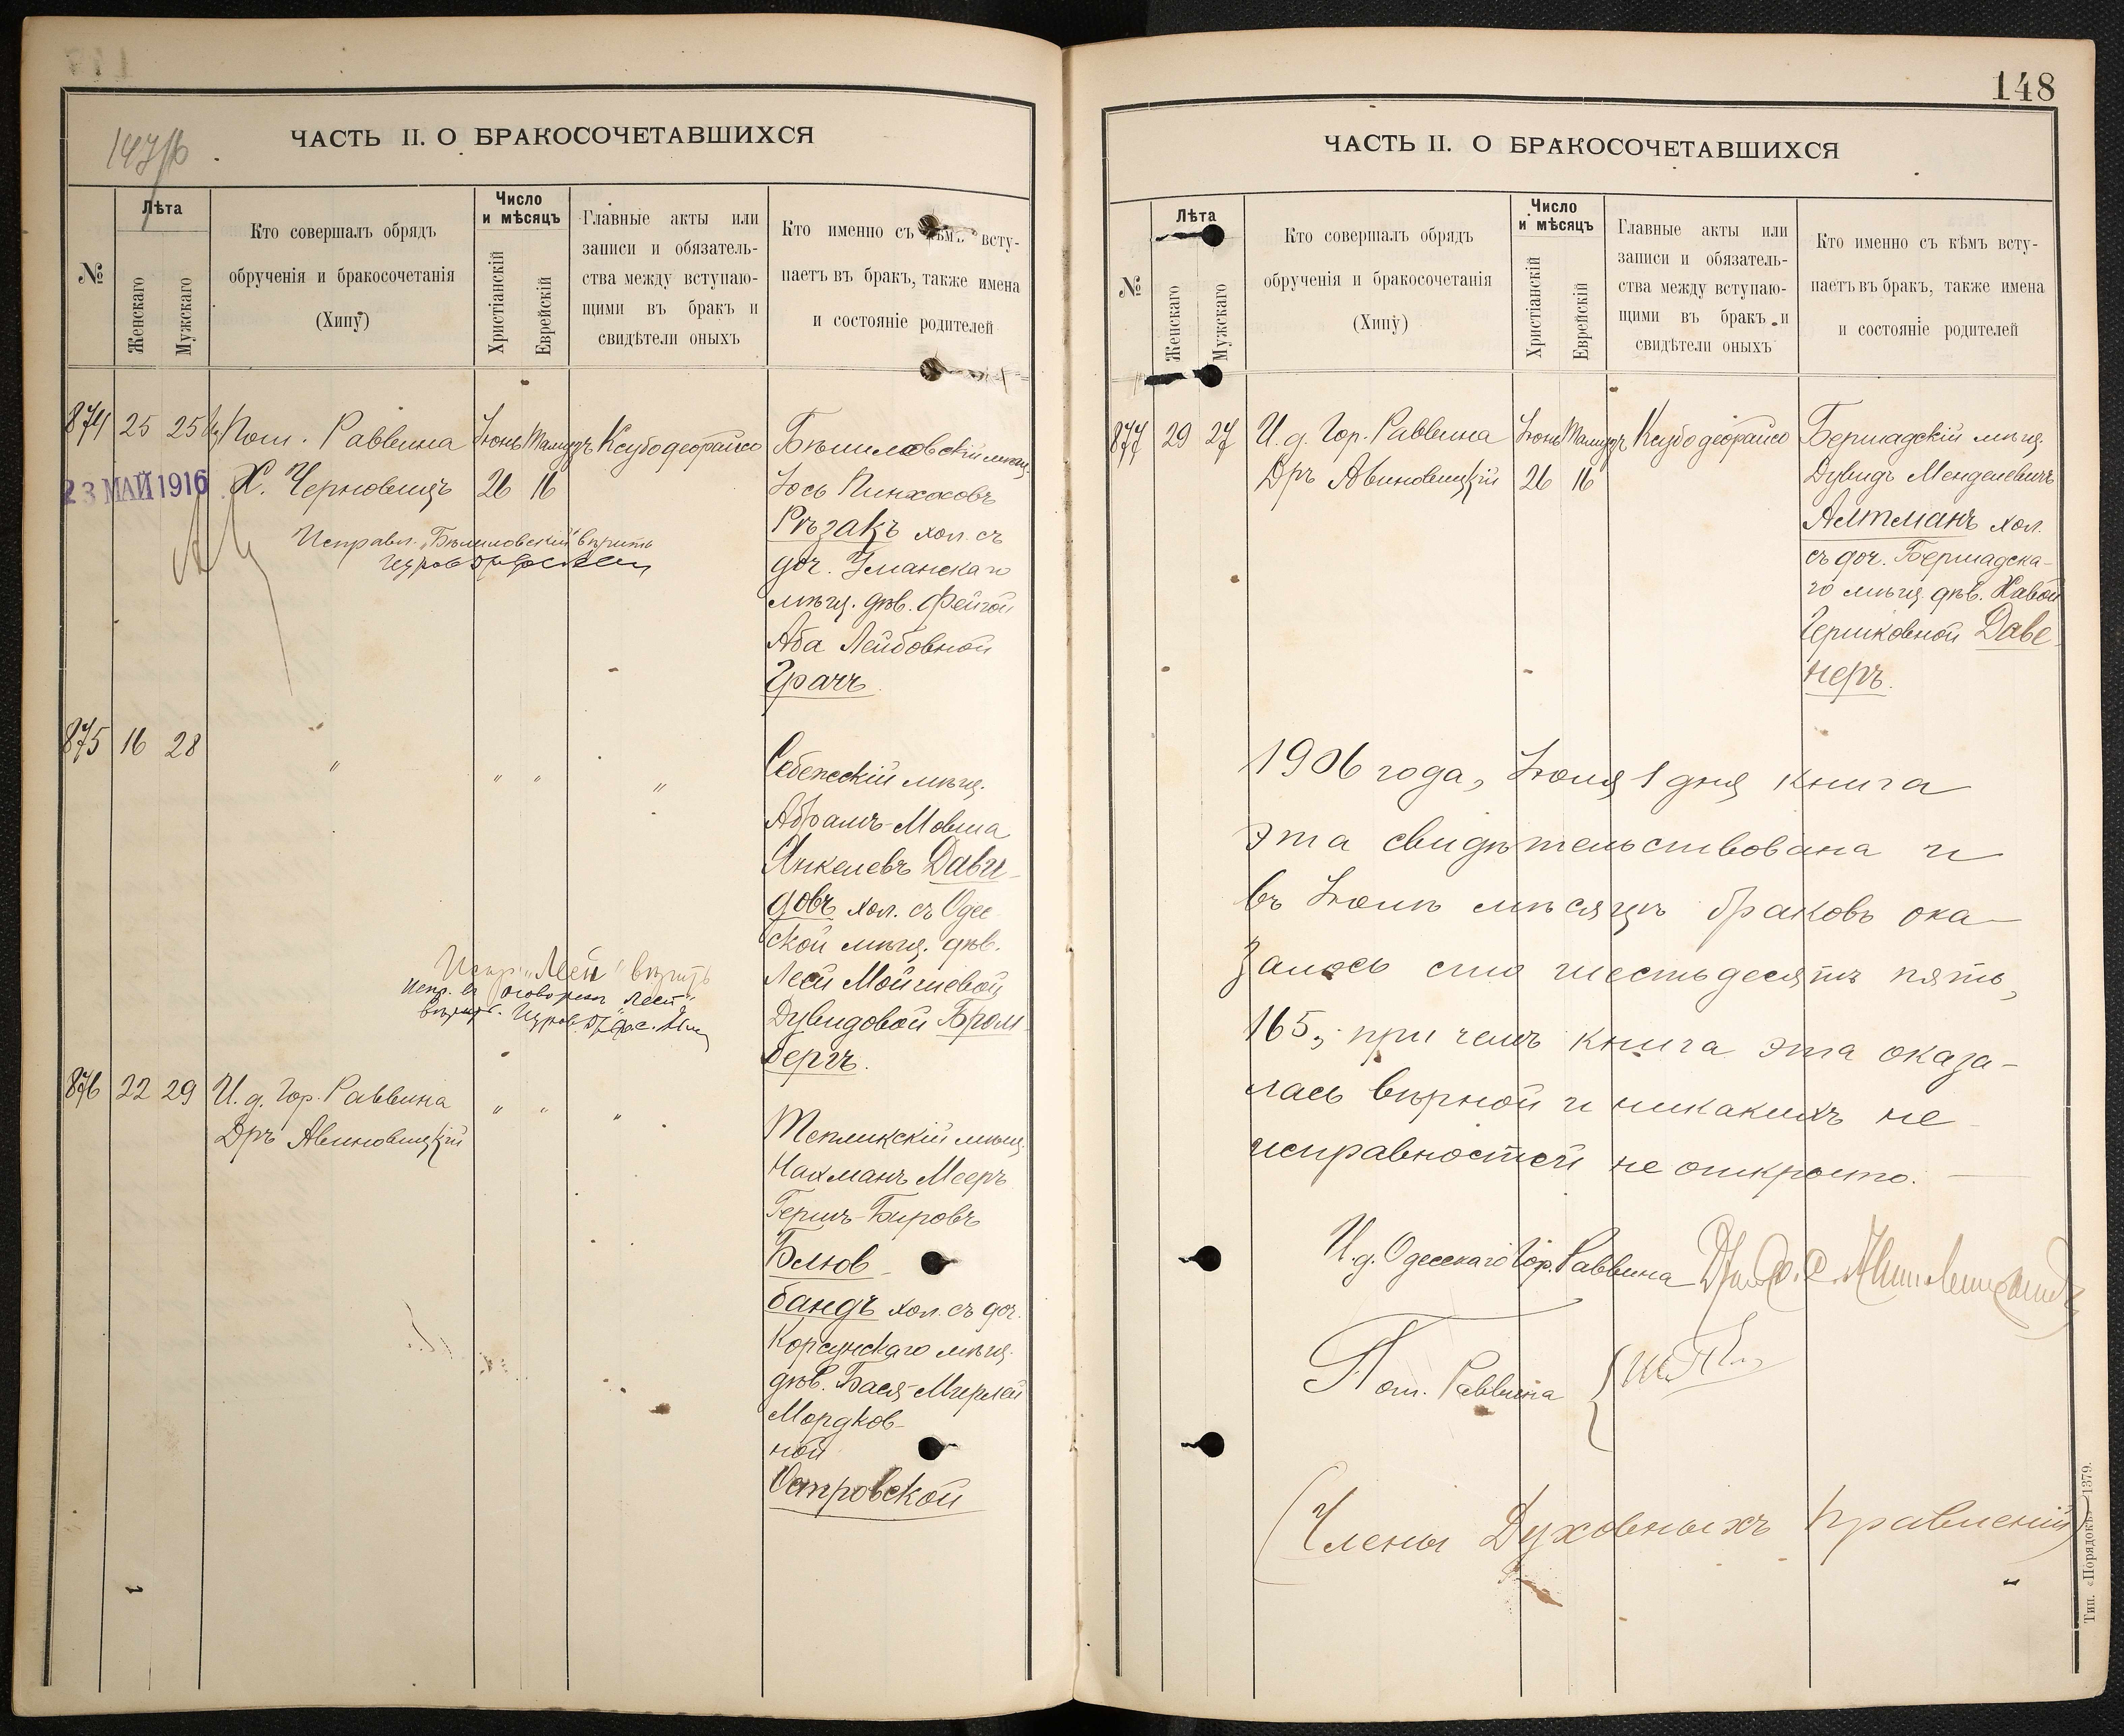 ЧАСТЬ II. О БРАКОСОЧЕТАВШИХСЯ
№
Лѣта
Женскаго
Мужскаго
Кто совершалъ обрядъ
обрученія и бракосочетанія
(Хипу)
Число
и мѣсяцъ
Христіанскій
Еврейскій
Главные акты или
записи и обязатель-
ства между вступаю-
щими въ бракъ и
свидѣтели оныхъ
Кто именно съ кѣмъ всту-
паетъ въ бракъ, также имена
и состояніе родителей
874 25 25 Пом. Раввина Іюнь Тамузъ Ксубо деорайсо
23 МАЙ 1916 Х. Черновицъ 26 16
Бѣшиловскій мѣщ.
Іось Пинхосовъ
Рѣзакъ хол. съ
доч. Уманскаго
мѣщ. дѣв. Фейгой
Аба Лейбовной
Грачъ.
Исправл. „Бѣшиловскій" вѣрить
875 16 28 " " " "
Себежскій мѣщ.
Абрамъ-Мовша
Янкелевъ Дави-
довъ хол. съ Одес
ской мѣщ. дѣв.
Леей Мойшевой
Дувидовой Бром-
бергъ.
Испр. „Леей" вѣрить
876 22 29 И. д. Гор. Раввина " " "
Дръ Авиновицкій
Тепликскій мѣщ.
Нахманъ Мееръ
Гершъ-Бировъ
Блюв-
бандъ хол. съ доч.
Корсунскаго мѣщ.
дѣв. Бася-Мирлей
Мордков-
ной
Островской
148
ЧАСТЬ II. О БРАКОСОЧЕТАВШИХСЯ
№
Лѣта
Женскаго
Мужскаго
Кто совершалъ обрядъ
обрученія и бракосочетанія
(Хипу)
Число
и мѣсяцъ
Христіанскій
Еврейскій
Главные акты или
записи и обязатель-
ства между вступаю-
щими въ бракъ и
свидѣтели оныхъ
Кто именно съ кѣмъ всту-
паетъ въ бракъ, также имена
и состояніе родителей
877 29 27 И. д. Гор. Раввина Іюнь Тамузъ Ксубо деорайсо
Дръ Авиновицкій 26 16
Бершадскій мѣщ.
Дувидъ Менделевичъ
Алтманъ хол.
съ доч. Бершадска-
го мѣщ. дѣв. Хавой
Гершковной Даве-
неръ.
1906 года, Іюля 1 дня книга
эта свидѣтельствована и
въ Іюнѣ мѣсяцѣ браковъ ока-
залось сто шестьдесятъ пять,
165, при чемъ книга эта оказа-
лась вѣрной и никакихъ не
исправностей не открыто.
И. д. Одесскаго Гор. Раввина
Пом. Раввина
(Члены Духовныхъ Правленій)
Тип. «Порядокъ»—1379.